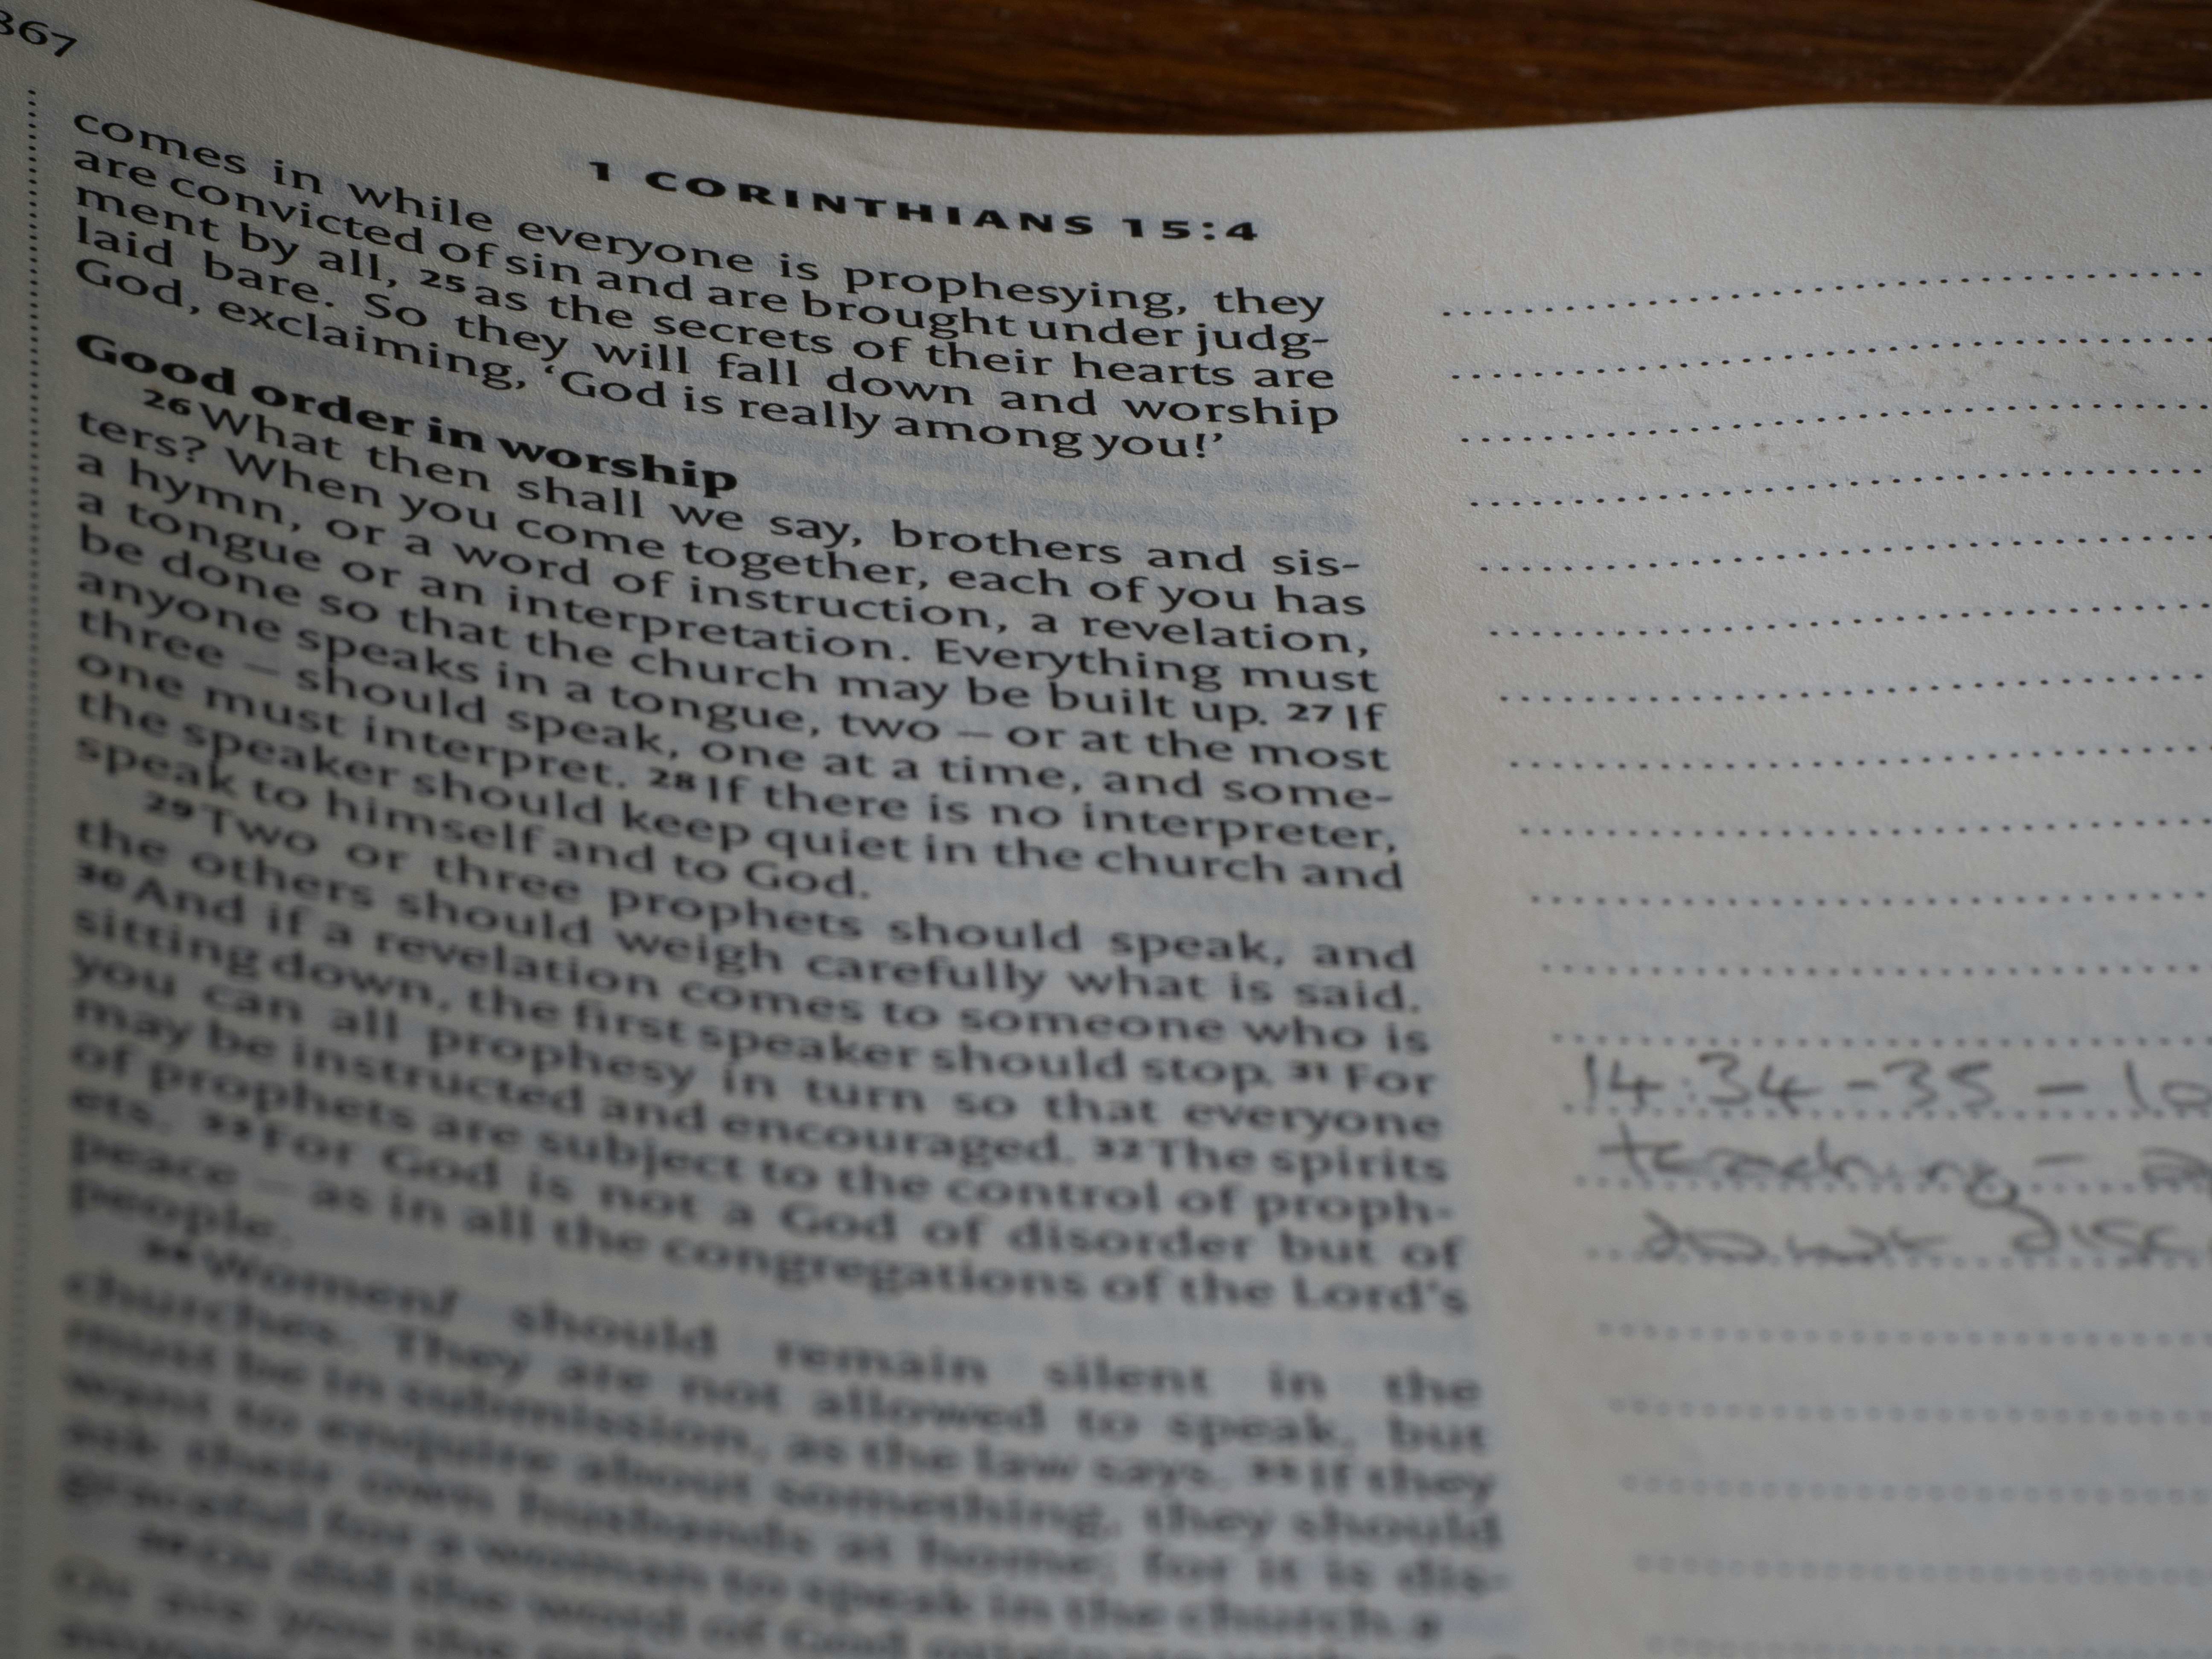 367
1 CORINTHIANS 15:4
comes in while everyone is prophesying, they
are convicted of sin and are brought under judg-
ment by all, 25 as the secrets of their hearts are
laid bare. So they will fall down and worship
God, exclaiming, ‘God is really among you!’
Good order in worship
26 What then shall we say, brothers and sis-
ters? When you come together, each of you has
a hymn, or a word of instruction, a revelation,
a tongue or an interpretation. Everything must
be done so that the church may be built up. 27 If
anyone speaks in a tongue, two – or at the most
three – should speak, one at a time, and some-
one must interpret. 28 If there is no interpreter,
the speaker should keep quiet in the church and
speak to himself and to God.
29 Two or three prophets should speak, and
the others should weigh carefully what is said.
30 And if a revelation comes to someone who is
sitting down, the first speaker should stop. 31 For
you can all prophesy in turn so that everyone
may be instructed and encouraged. 32 The spirits
of prophets are subject to the control of proph-
ets. 33 For God is not a God of disorder but of
peace – as in all the congregations of the Lord's
people.
34 Women f should remain silent in the
churches. They are not allowed to speak, but
must be in submission, as the law says. 35 If they
want to enquire about something, they should
ask their own husbands at home; for it is dis-
graceful for a woman to speak in the church. g
36 Or did the word of God
Or are you the
14:34-35 -
teaching -